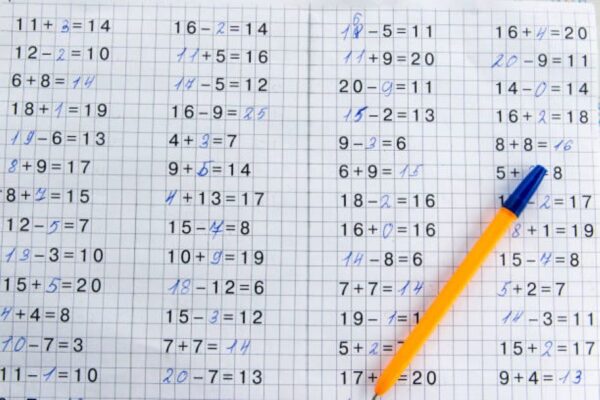 11+3=14
12-2=10
6+8=14
18+1=19
19-6=13
8+9=17
8+7=15
12-5=7
13-3=10
15+5=20
4+4=8
10-7=3
11-1=10
16-2=14
11+5=16
17-5=12
16-9=25
4+3=7
9+5=14
4+13=17
15-7=8
10+9=19
18-12=6
15-3=12
7+7=14
20-7=13
16-5=11
11+9=20
20-9=11
15-2=13
9-3=6
6+9=15
18-2=16
16+0=16
14-8=6
7+7=14
19-1=1
5+2=
17+ =20
16+4=20
20-9=11
14-0=14
16+2=18
8+8=16
5+ 8
-2=17
8+1=19
15-7=8
5+2=7
14-3=11
15+2=17
9+4=13